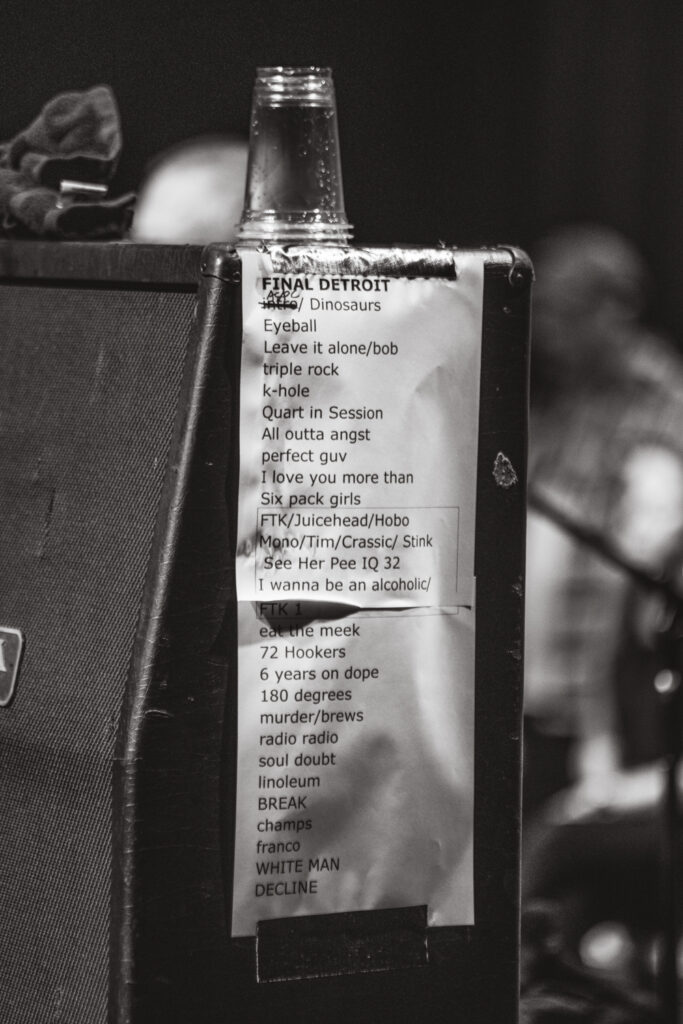 FINAL DETROIT
intro/ Dinosaurs
Eyeball
Leave it alone/bob
triple rock
k-hole
Quart in Session
All outta angst
perfect guv
I love you more than
Six pack girls
FTK/Juicehead/Hobo
Mono/Tim/Crassic/ Stink
See Her Pee IQ 32
I wanna be an alcoholic/
FTK 1
eat the meek
72 Hookers
6 years on dope
180 degrees
murder/brews
radio radio
soul doubt
linoleum
BREAK
champs
franco
WHITE MAN
DECLINE